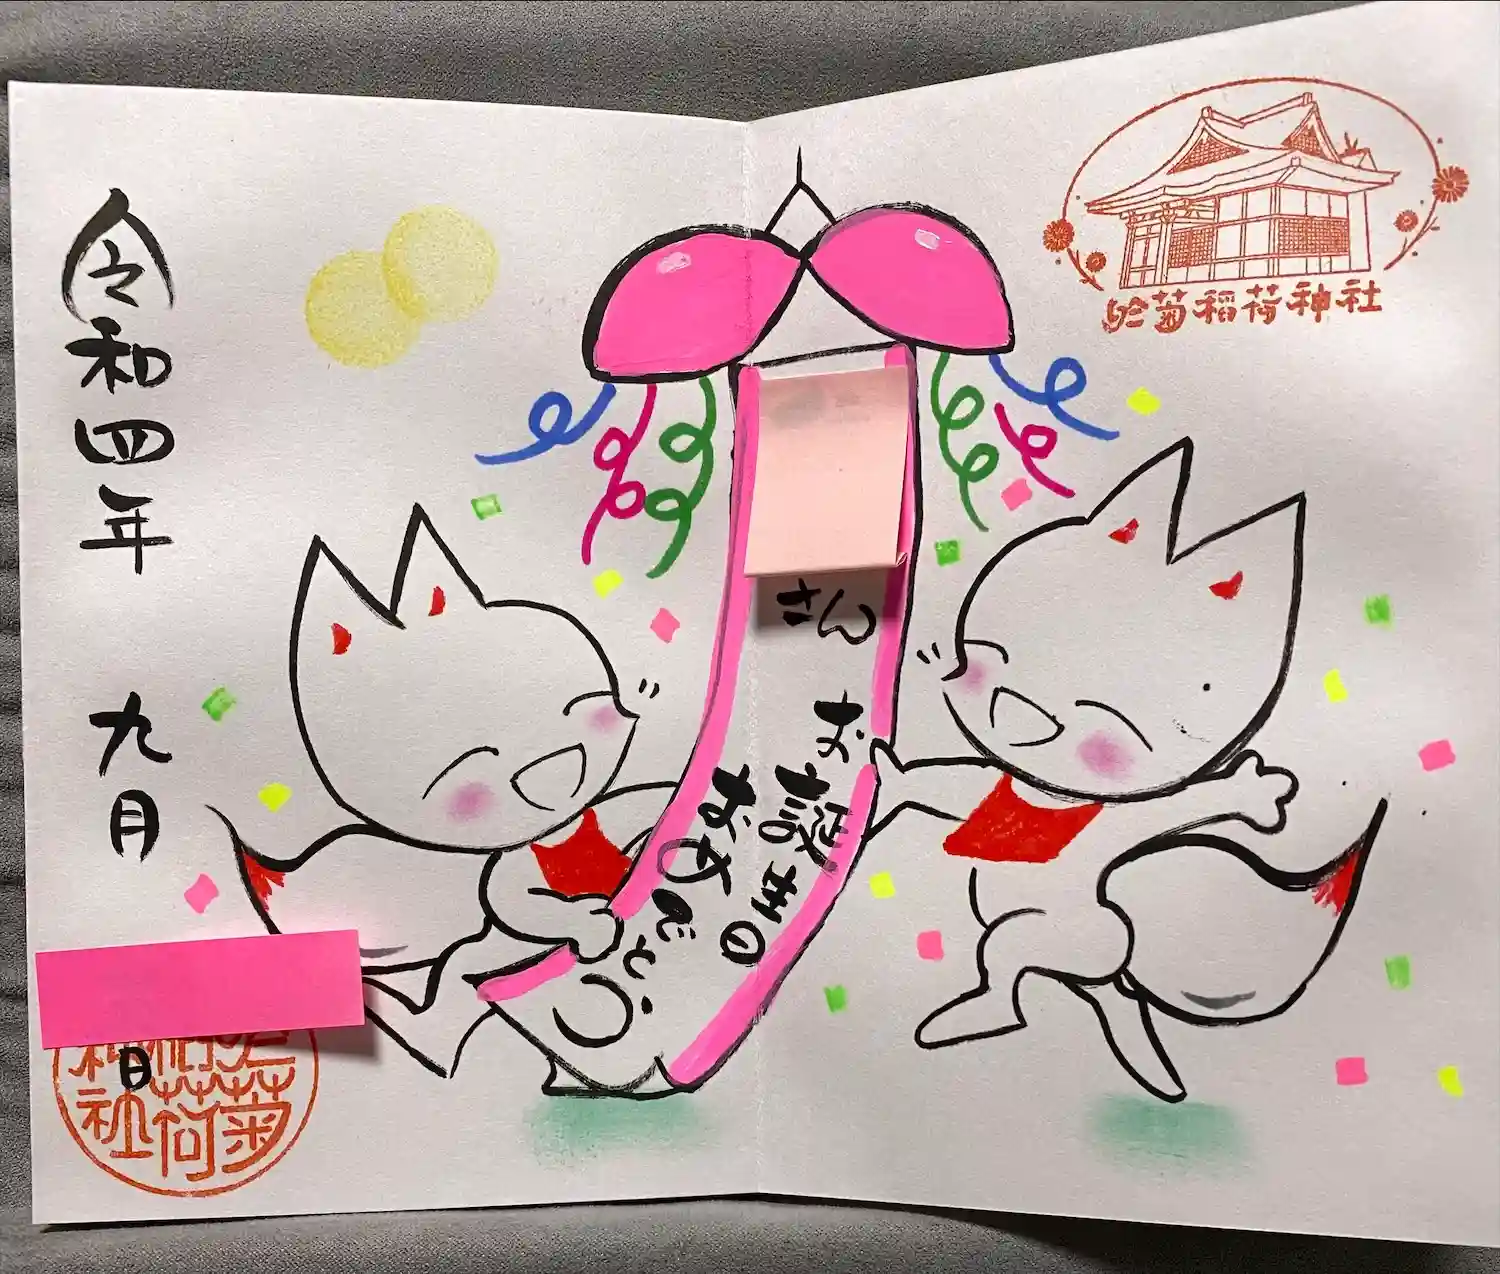 於菊稲荷神社
さん
お誕生日
おめでとう
令和四年 九月
日
菊
荷
社